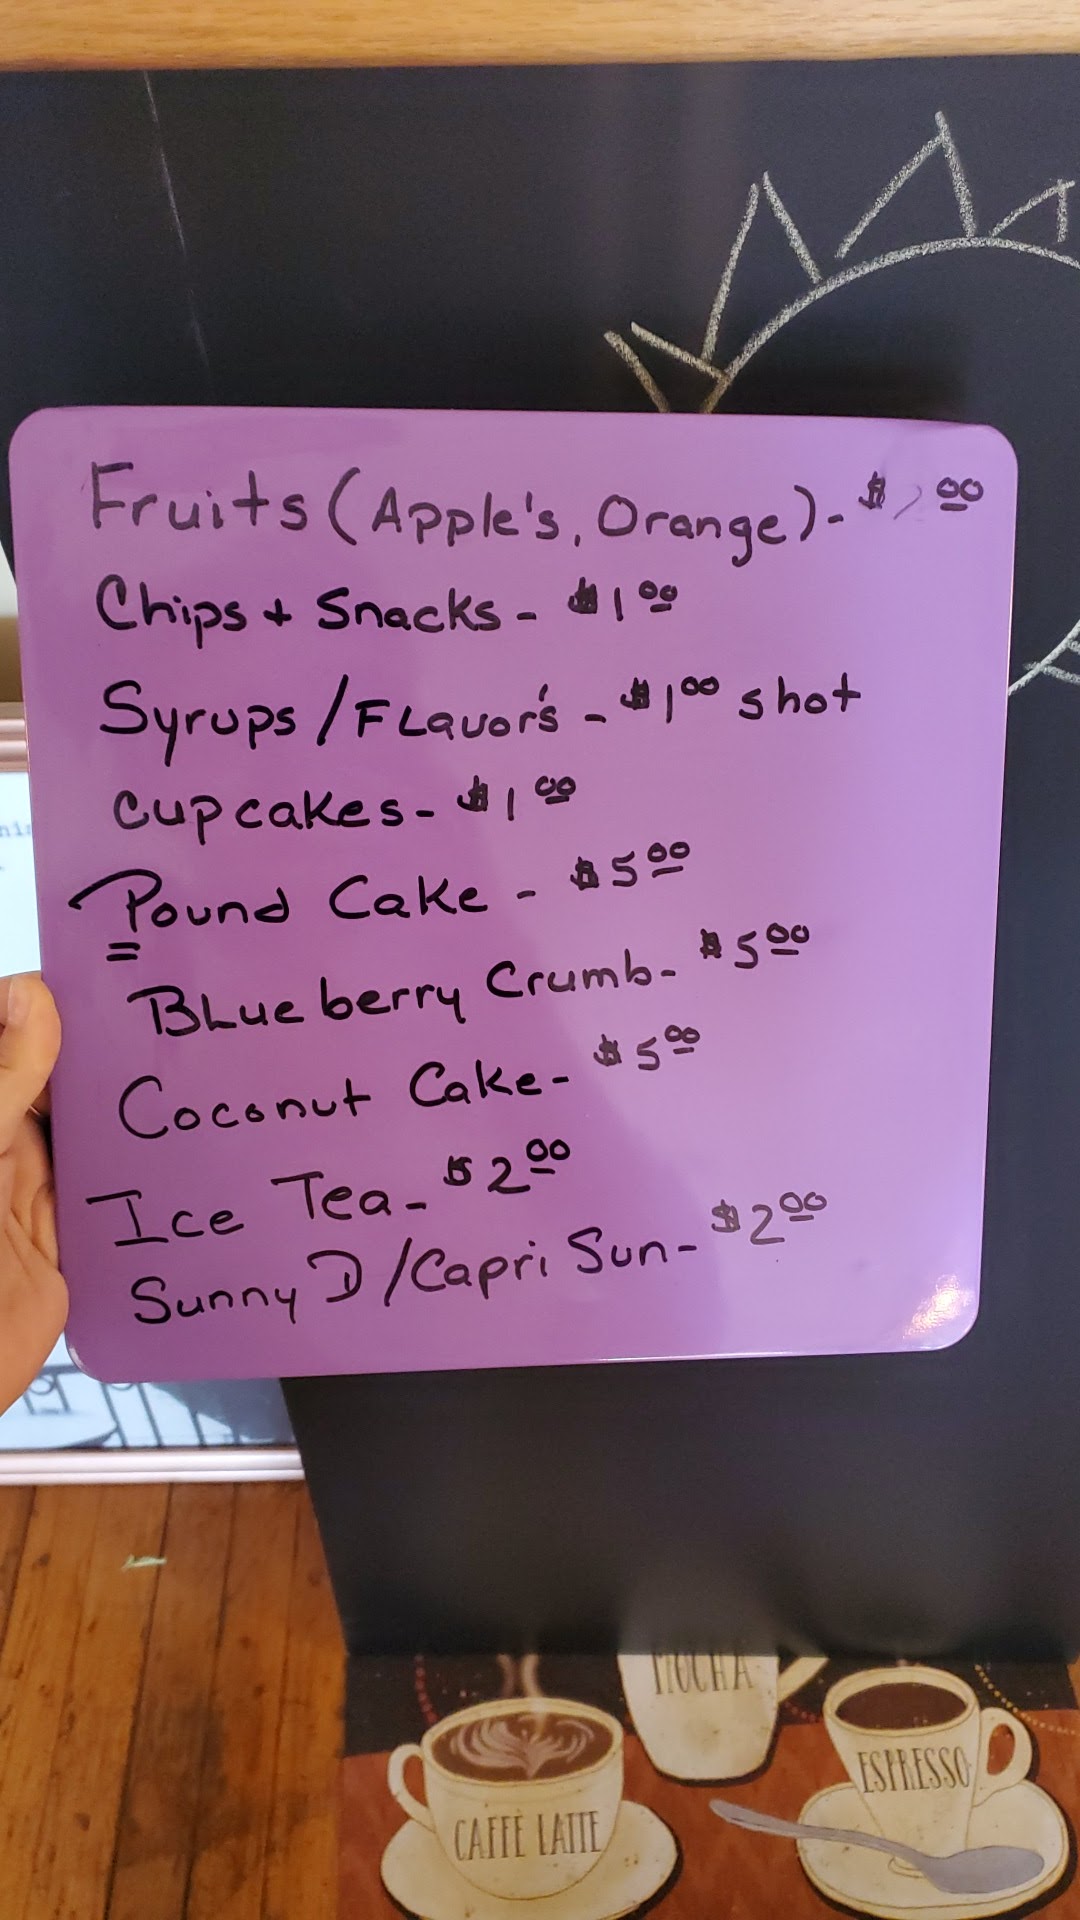 Fruits (Apple's, Orange) - $1.00
Chips + Snacks - $1.00
Syrups / FLavor's - $1.00 shot
cupcakes - $1.00
Pound Cake - $5.00
BLueberry Crumb - $5.00
Coconut Cake - $5.00
Ice Tea - $2.00
Sunny D / Capri Sun - $2.00
MOCHA
ESPRESSO
CAFFÈ LATTE